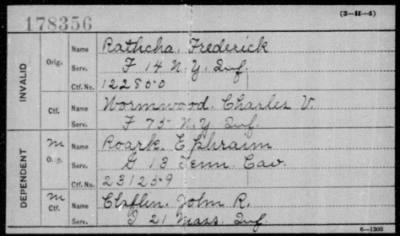 178356
(3-H-4)
INVALID
Orig. Name Rathcha, Frederick
Serv. F 14 N.Y. Inf.
Ctf. No. 122800
Ctf. Name Wormwood, Charles V.
Serv. F 75 N.Y. Inf.
DEPENDENT
M Orig. Name Roark Ephraim
Serv. G 13 Tenn Cav.
Ctf. No. 231259
M Ctf. Name Chaflin, John R.
Serv. I 21 Mass. Inf.
6-1303